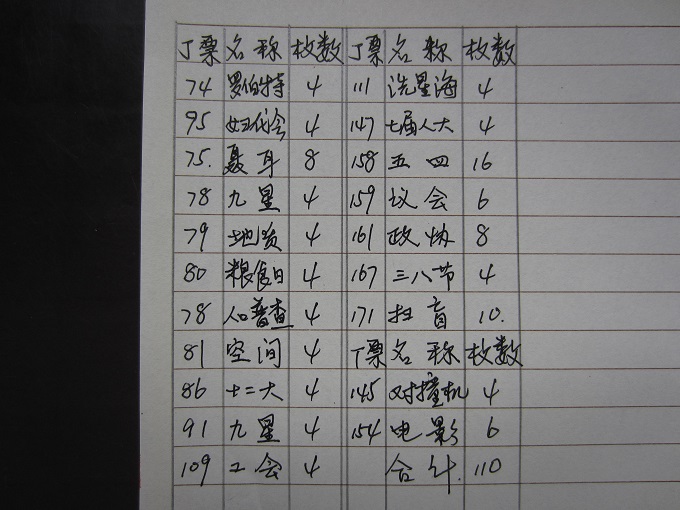 J票 名称 枚数 J票 名称 枚数
74 罗伯特 4 111 洗星海 4
95 妇代会 4 147 七届人大 4
75. 聂耳 8 158 五四 16
78 九星 4 159 议会 6
79 地质 4 161 政协 8
80 粮食日 4 167 三八节 4
78 人口普查 4 171 扫盲 10.
81 空间 4 J票 名称 枚数
86 十二大 4 145 对撞机 4
91 九星 4 154 电影 6
109 工会 4 合计. 110